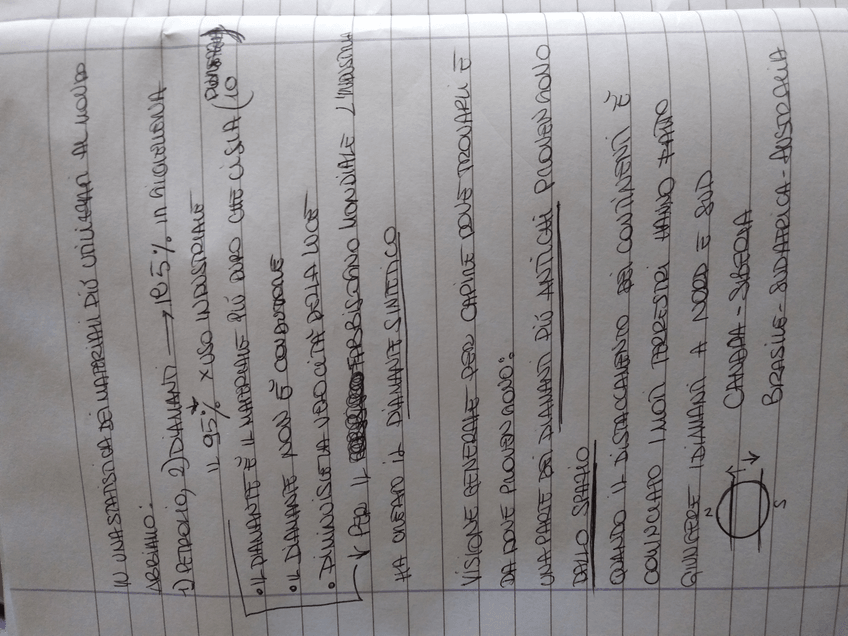 IN UNA STATISTICA DEI MATERIALI PIÙ UTILIZZATI AL MONDO
ABBIAMO:
1) PETROLIO, 2) DIAMANTI → 18.5% IN GIOIELLERIA
IL 95% X USO INDUSTRIALE
• IL DIAMANTE È IL MATERIALE PIÙ DURO CHE CI SIA (10
• IL DIAMANTE NON È CONDUTTORE
• DIMINUISCE LA VELOCITÀ DELLA LUCE
PER IL FABBISOGNO MONDIALE L'INDUSTRIA
HA CREATO IL DIAMANTE SINTETICO
VISIONE GENERALE PER CAPIRE DOVE TROVARLI E
DA DOVE PROVENGONO:
UNA PARTE DEI DIAMANTI PIÙ ANTICHI PROVENGONO
DALLO SPAZIO
QUANDO IL DISTACCAMENTO DEI CONTINENTI È
COMINCIATO I MOTI TERRESTRI HANNO FATTO
GIUNGERE I DIAMANTI A NORD E SUD
N CANADA - SIBERIA
S BRASILE - SUDAFRICA - AUSTRALIA